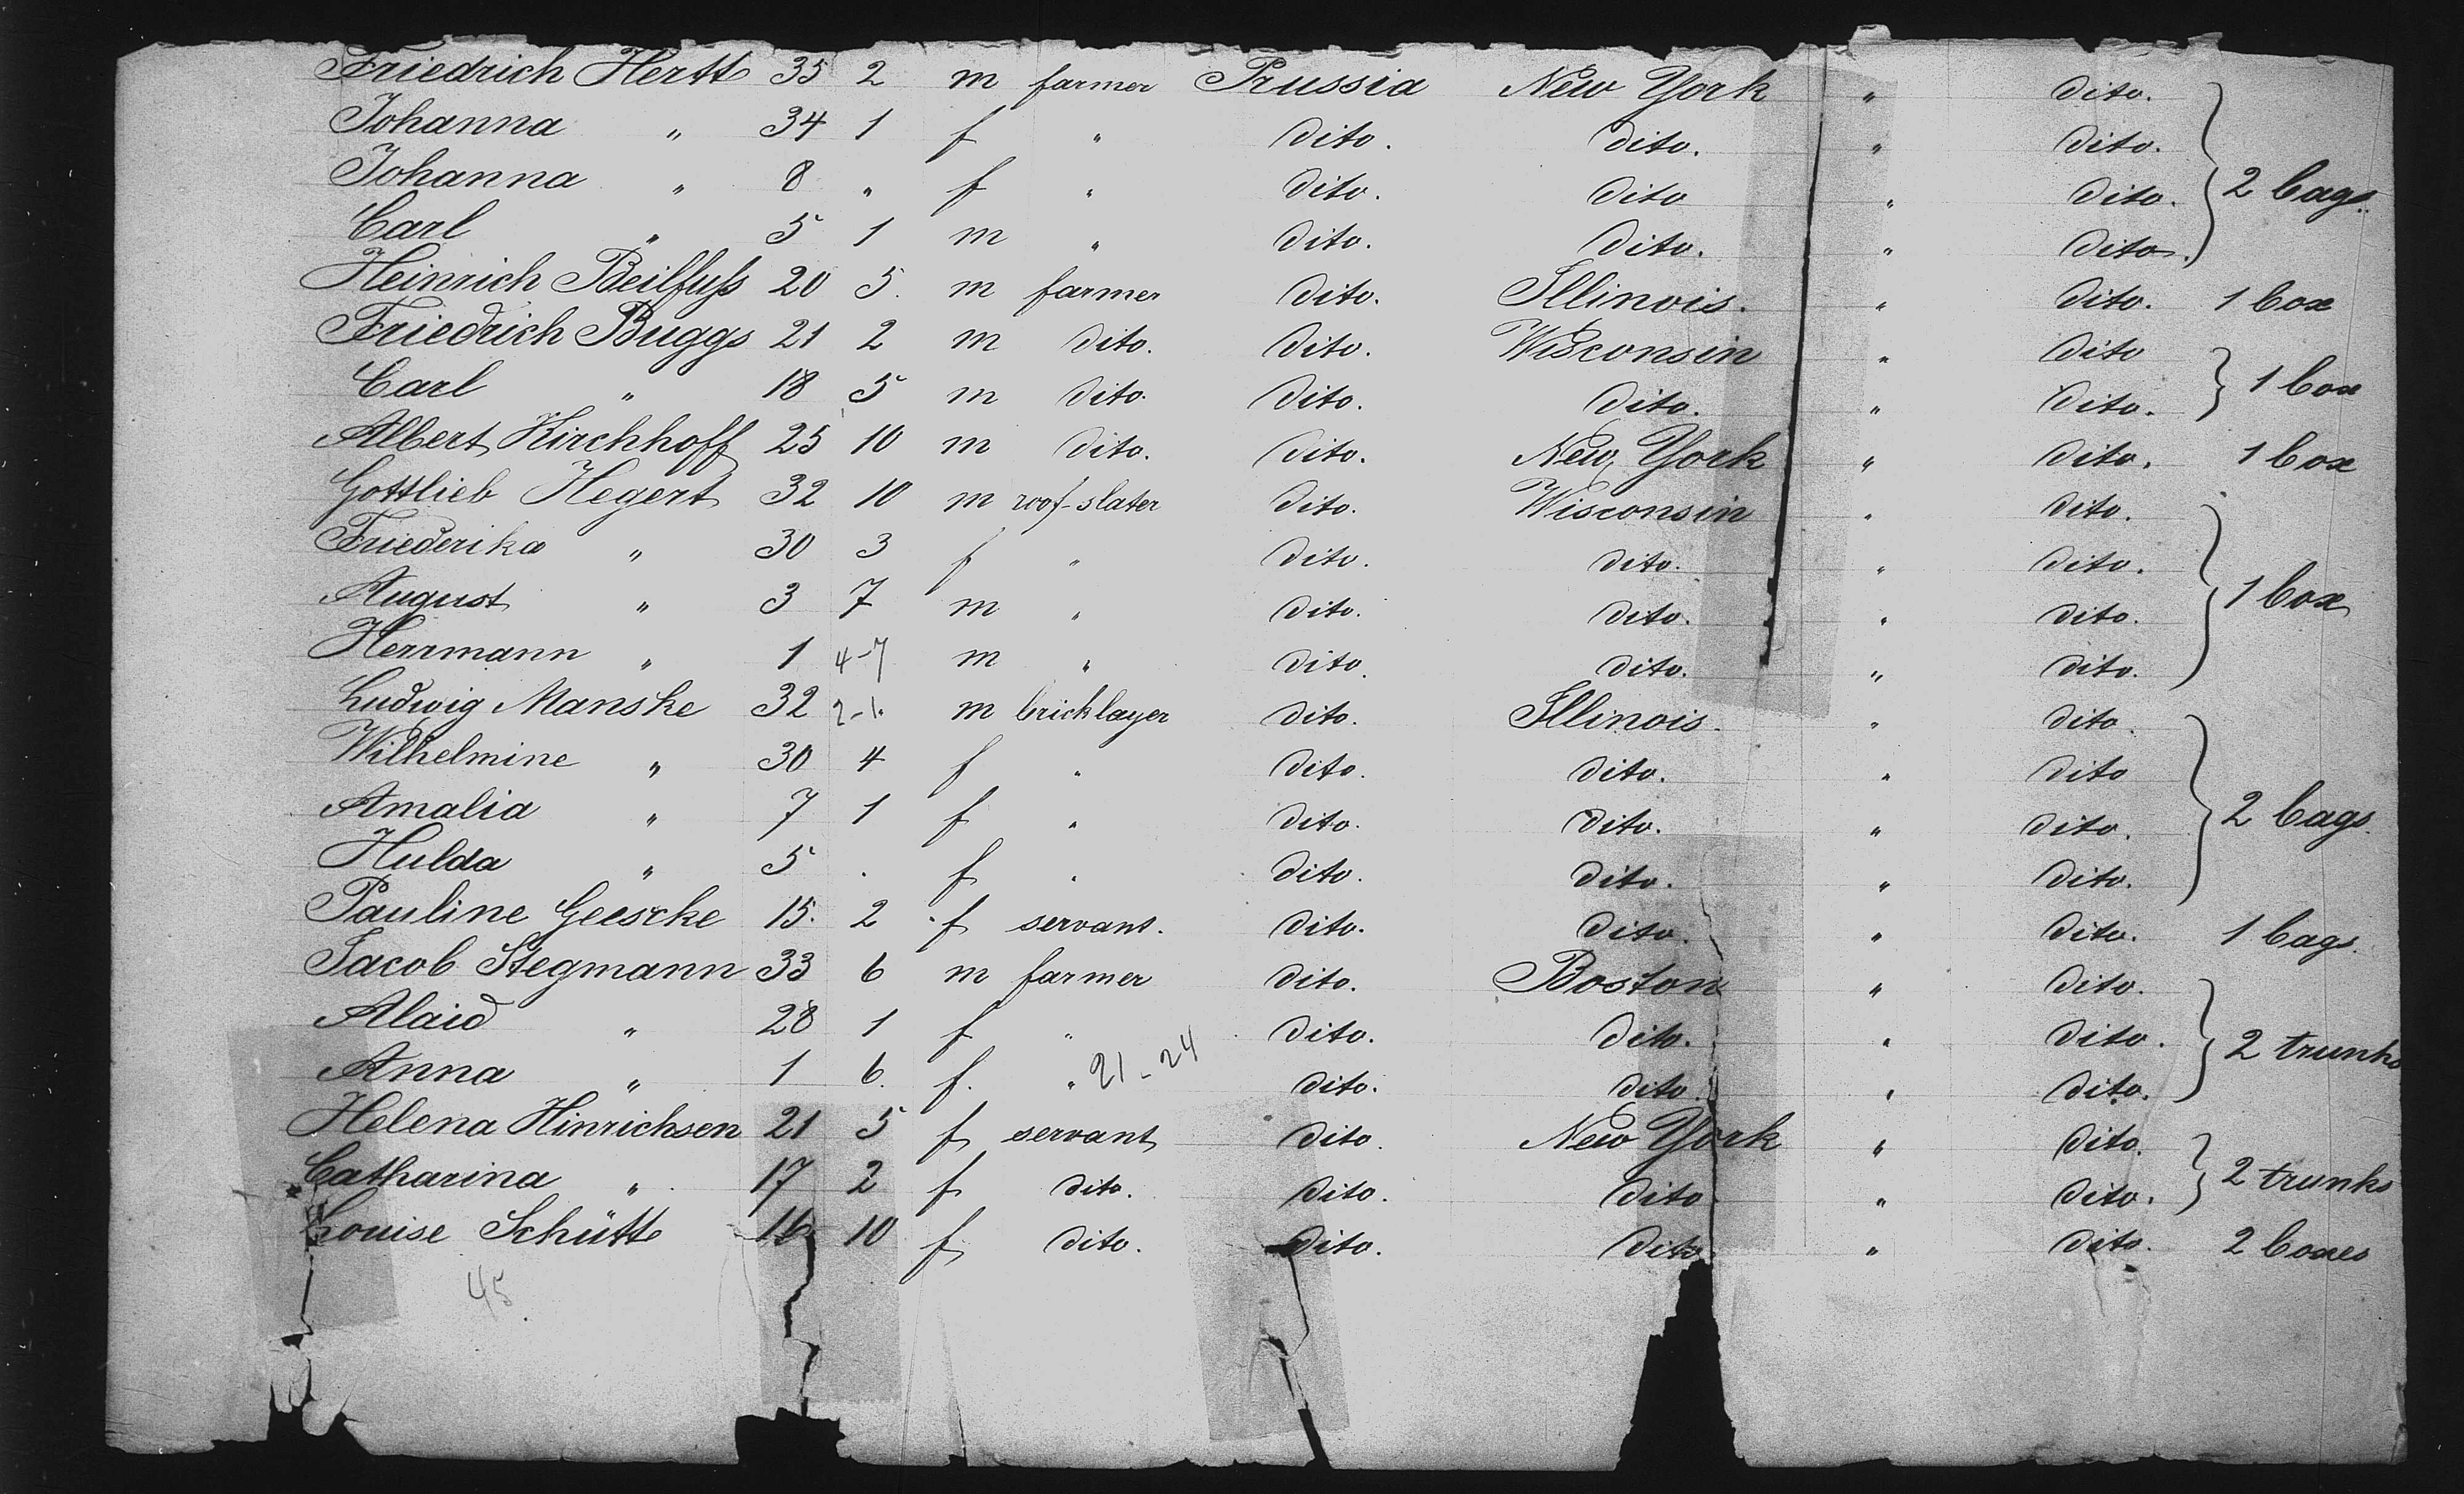 Friedrich Hertt 35 2 m farmer Prussia New York " dito.
Johanna " 34 1 f " dito. dito. " dito.
Johanna " 8 " f " dito. dito " dito. 2 bags.
Carl " 5 1 m " dito. dito. " dito.
Heinrich Beilfuſs 20 5. m farmer dito. Illinois. " dito. 1 box
Friedrich Buggs 21 2 m dito. dito. Wisconsin " dito
Carl " 18 5 m dito. dito. dito. " dito. 1 box
Albert Kirchhoff 25 10 m dito. dito. New York " dito. 1 box
Gottlieb Hegert 32 10 m roof-slater dito. Wisconsin " dito.
Friederika " 30 3 f " dito. dito. " dito.
August " 3 7 m " dito. dito. " dito. 1 box
Herrmann " 1 4-7 m " dito. dito. " dito.
Ludwig Manske 32 2-1. m bricklayer dito. Illinois. " dito.
Wilhelmine " 30 4 f " dito. dito. " dito
Amalia " 7 1 f " dito. dito. " dito. 2 bags.
Hulda " 5 . f " dito. dito. " dito.
Pauline Geescke 15. 2 f servant. dito. dito. " dito. 1 bags.
Jacob Stegmann 33 6 m farmer dito. Boston " dito.
Alaid " 28 1 f " dito. dito. " dito. 2 trunks
Anna " 1 6. f. " 21-24 dito. dito " dito.
Helena Hinrichsen 21 5 f servant dito. New York " dito.
Catharina " 17 2 f dito. dito. dito " dito. 2 trunks
Louise Schütt 16 10 f dito. dito. dito " dito. 2 boxes
45